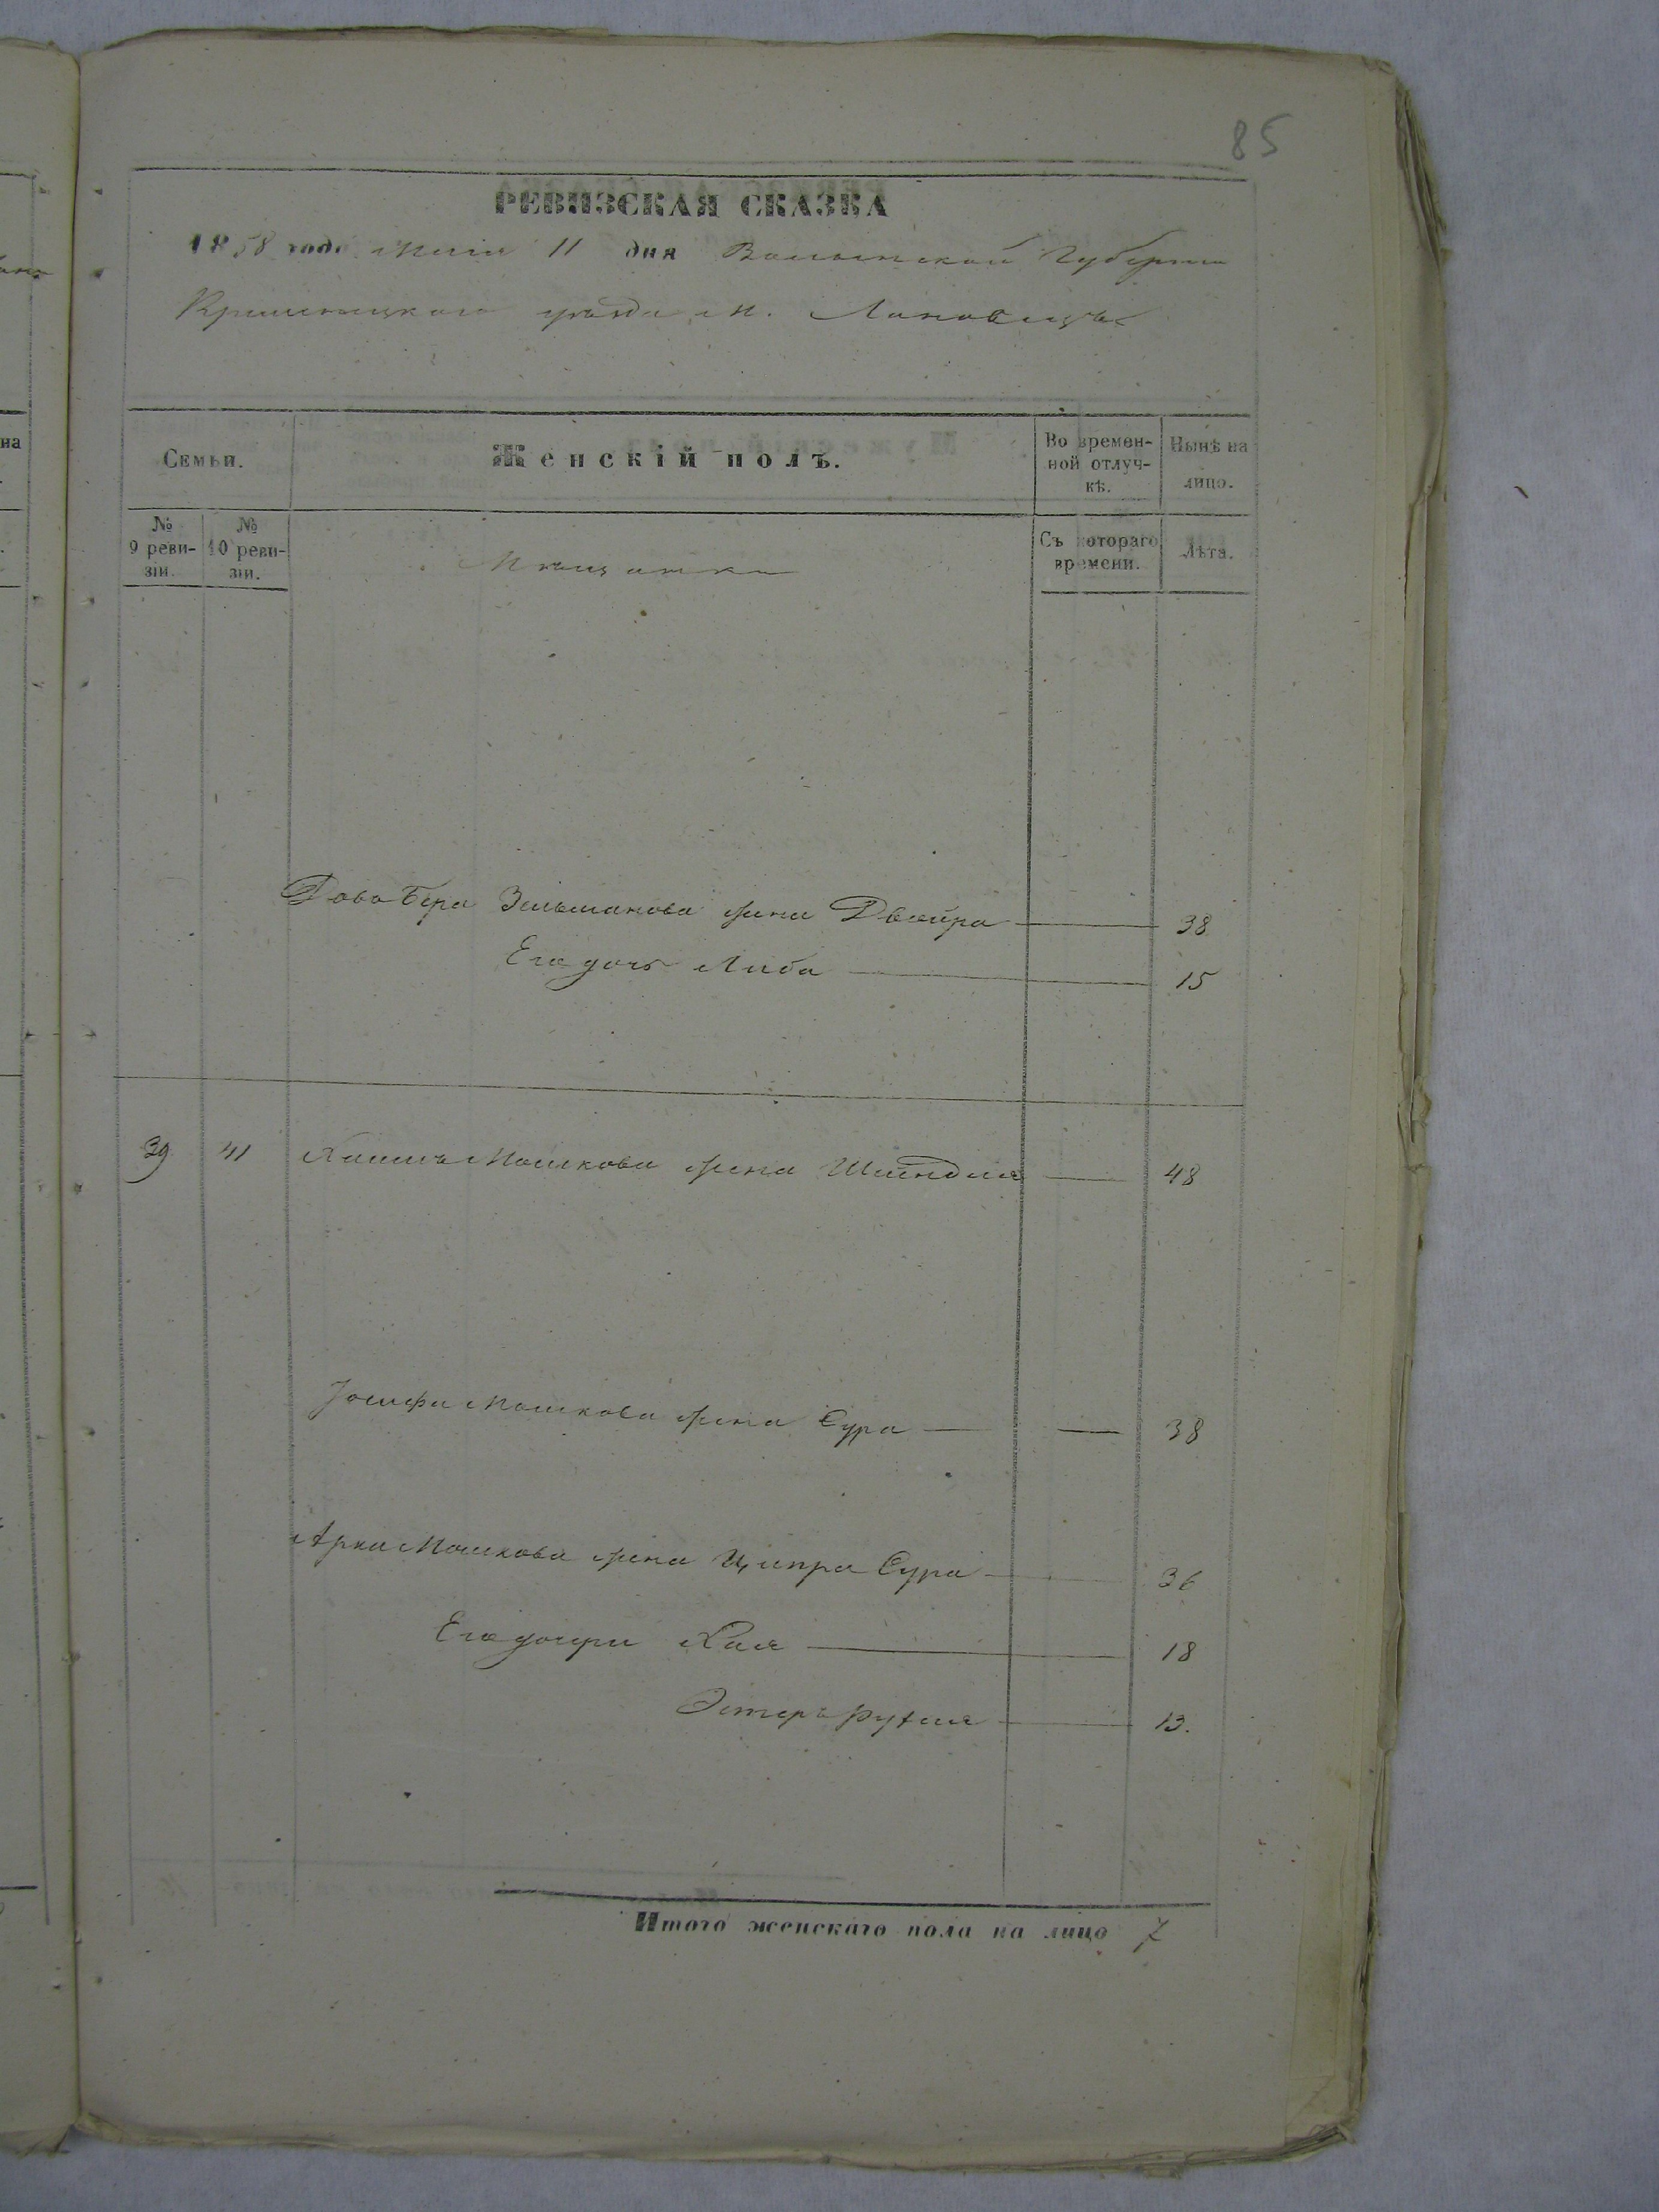 85
РЕВИЗСКАЯ СКАЗКА
1858 года Маія 11 дня Волынской Губерніи
Кременецкаго уѣзда м. Лановецъ
Семьи. Женскій полъ. Во времен-ной отлуч-кѣ. Нынѣ на лицо.
№ 9 реви-зіи. № 10 реви-зіи. Мѣщанки Съ котораго времени. Лѣта.
Дово Бера Зельманова жена Двойра 38
Его дочь Либа 15
39 41 Хаима Мошкова жена Шейндля 48
Іосифа Мошкова жена Сура 38
Арка Мошкова жена Ципра Сура 36
Его дочери Хая 18
Эстеръ Рухля 13.
Итого женскаго пола на лицо 7